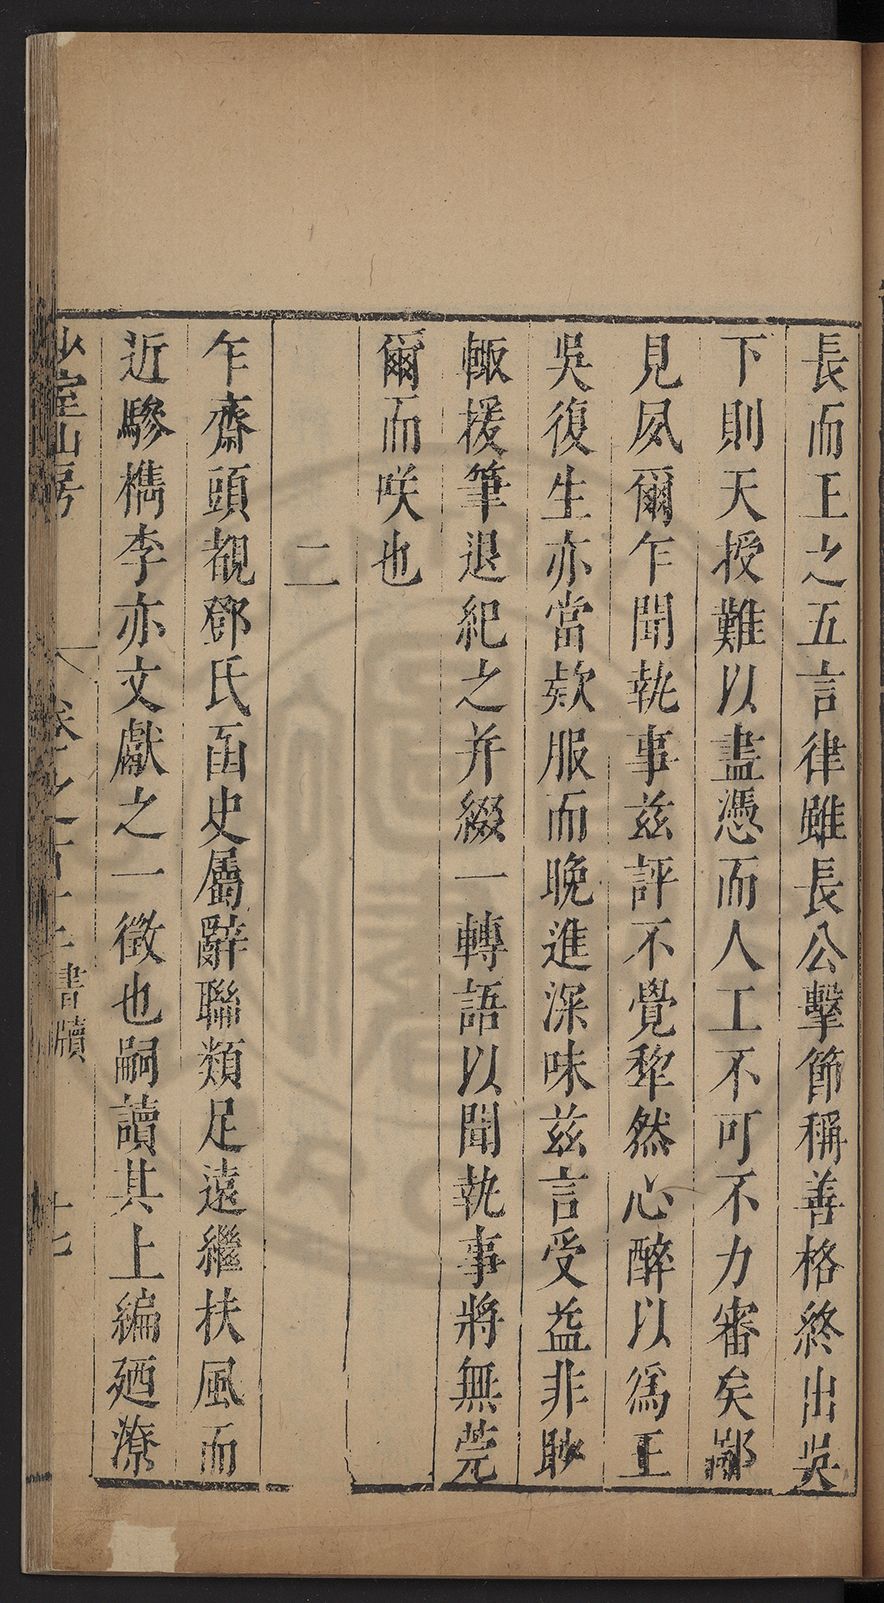 長而王之五言律雖長公擊節稱善格終出吳
下則天授難以盡憑而人工不可不力審矣鄙
見夙爾乍聞執事兹評不覺犂然心醉以爲王
吳復生亦當欵服而晚進深味兹言受益非眇
輙援筆退紀之并綴一轉語以聞執事將無莞
爾而咲也
二
乍齋頭覩鄧氏函史屬辭聯類足遠繼扶風而
近驂檇李亦文獻之一徵也嗣讀其上編廼潦
少室山房
卷之百十
書牘
十七